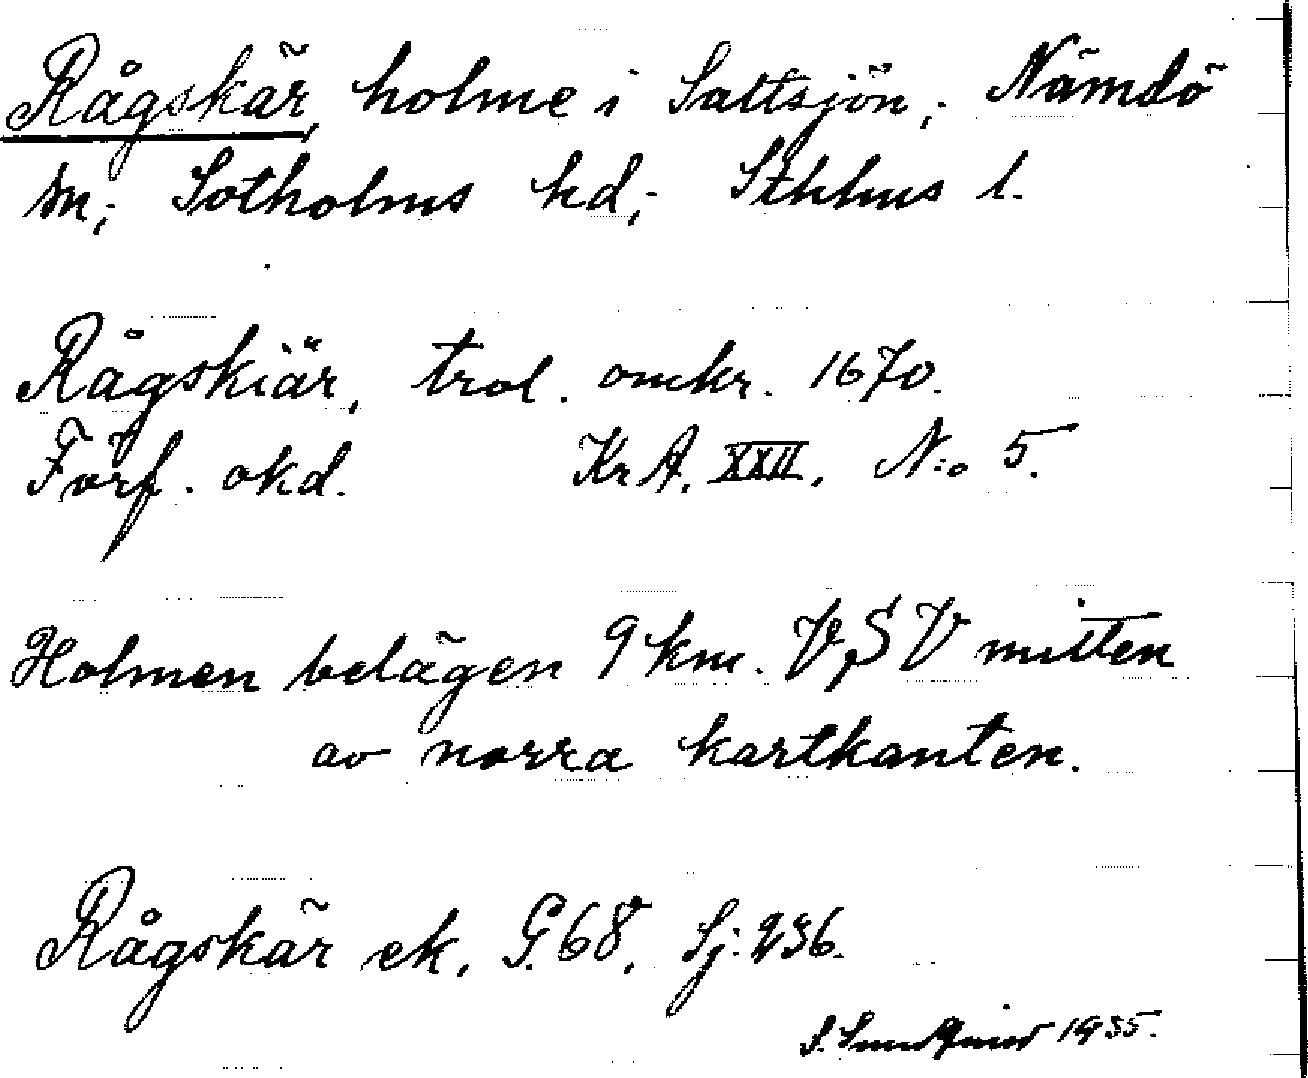 Rågskär, holme i Saltsjön; Nämdö
sn; Sotholms hd; Sthlms l.
Rågskiär, trol. omkr. 1670.
Förf. okd. Kr A. XXII. N:o 5.
Holmen belägen 9 km. V,SV mitten
av norra kartkanten.
Rågskär ek. G. 68, Sj: 236.
S. 1935.